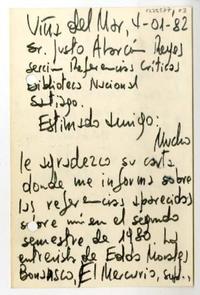 Viña del Mar, 4-01-82
Sr. Justo Alarcón Reyes
Sección Referencias Críticas
Biblioteca Nacional
Santiago.
Estimado amigo:
Mucho
le agradezco su carta
donde me informa sobre
las referencias aparecidas
sobre mí en el segundo
semestre de 1980. La
entrevista de Eddo Morales
El Mercurio,